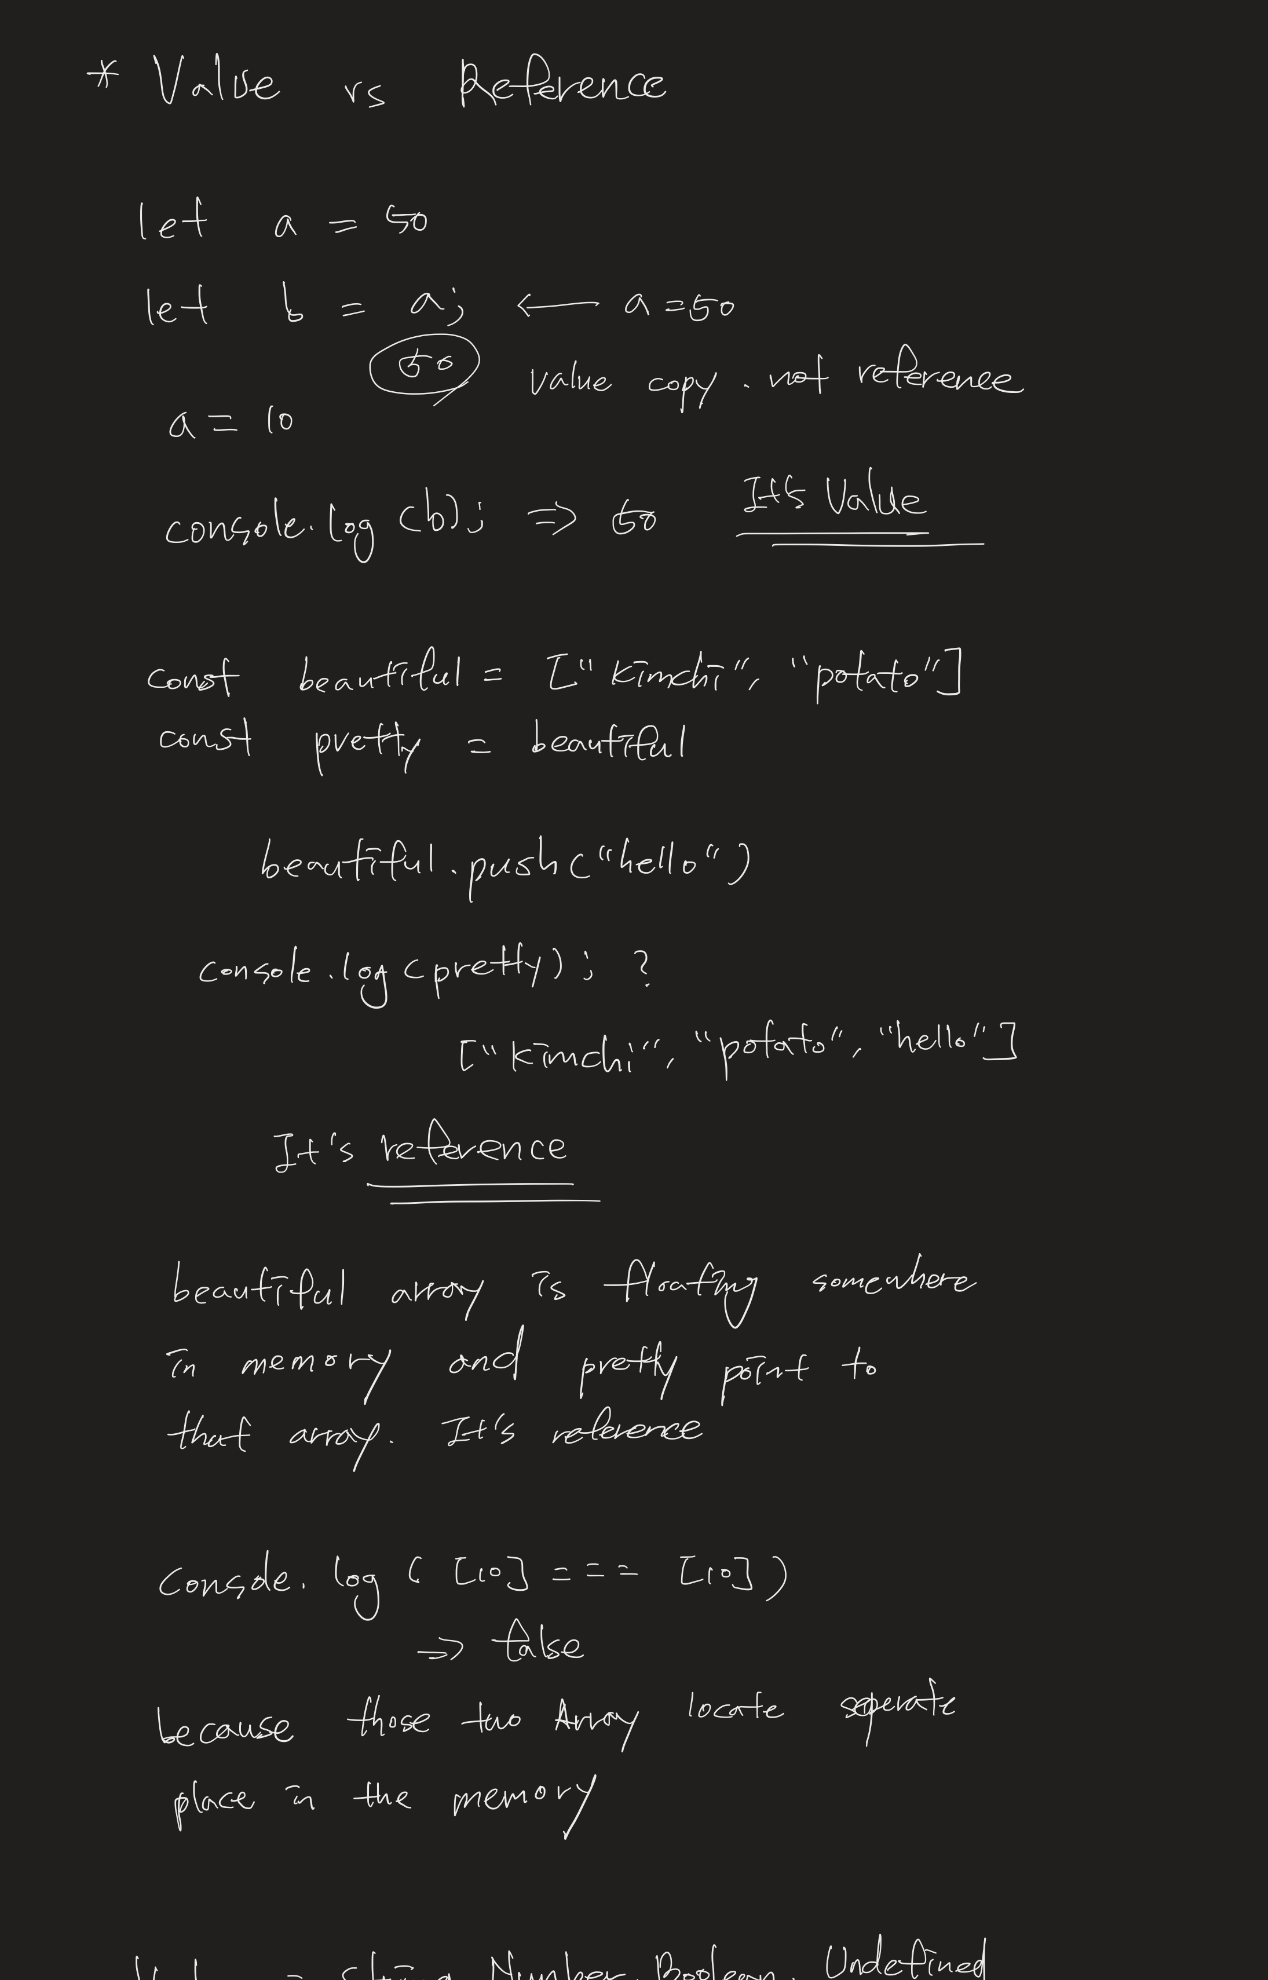 * Value vs Reference
let a = 50
let b = a; ← a = 50
50 value copy. not reference
a = 10
console.log(b); ⇒ 50 It's Value
const beautiful = ["kimchi", "potato"]
const pretty = beautiful
beautiful.push("hello")
console.log(pretty); ?
["kimchi", "potato", "hello"]
It's reference
beautiful array is floating somewhere
in memory and pretty point to
that array. It's reference
console.log([10] === [10])
⇒ false
because those two Array locate seperate
place in the memory
= String, Number, Boolean, Undefined